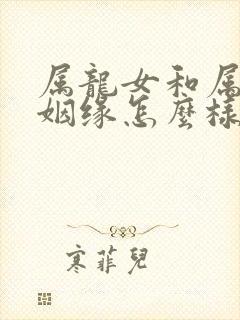 属龍女和属
姻缘怎麼樣
寒菲兒